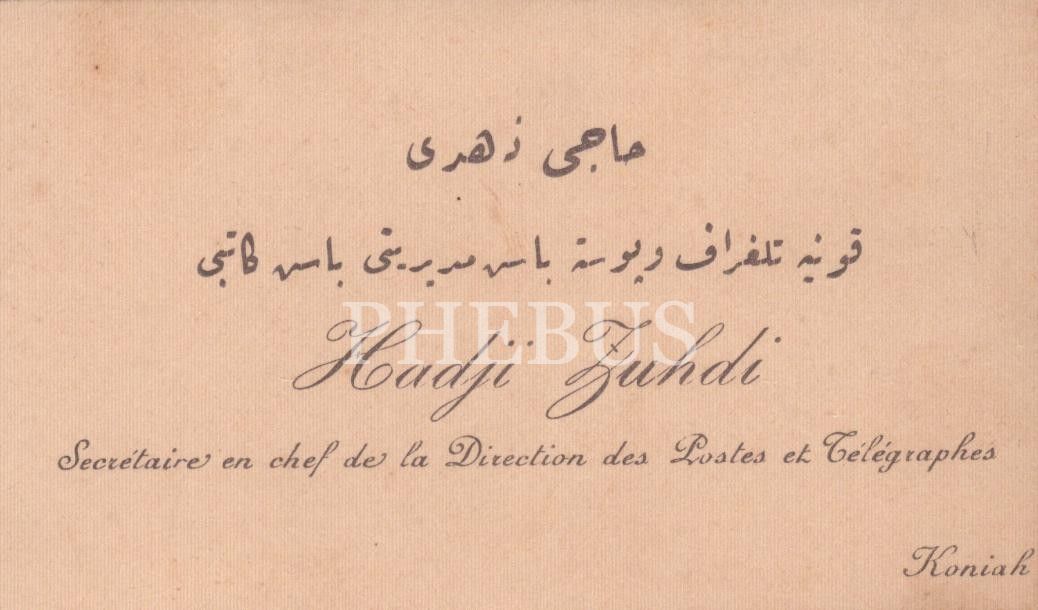 حاجی ذهدی
قونیه تلغراف و پوسته باش مدیریتی باش کاتبی
PHEBUS
Hadji Zuhdi
Secrétaire en chef de la Direction des Postes et Télégraphes
Koniah